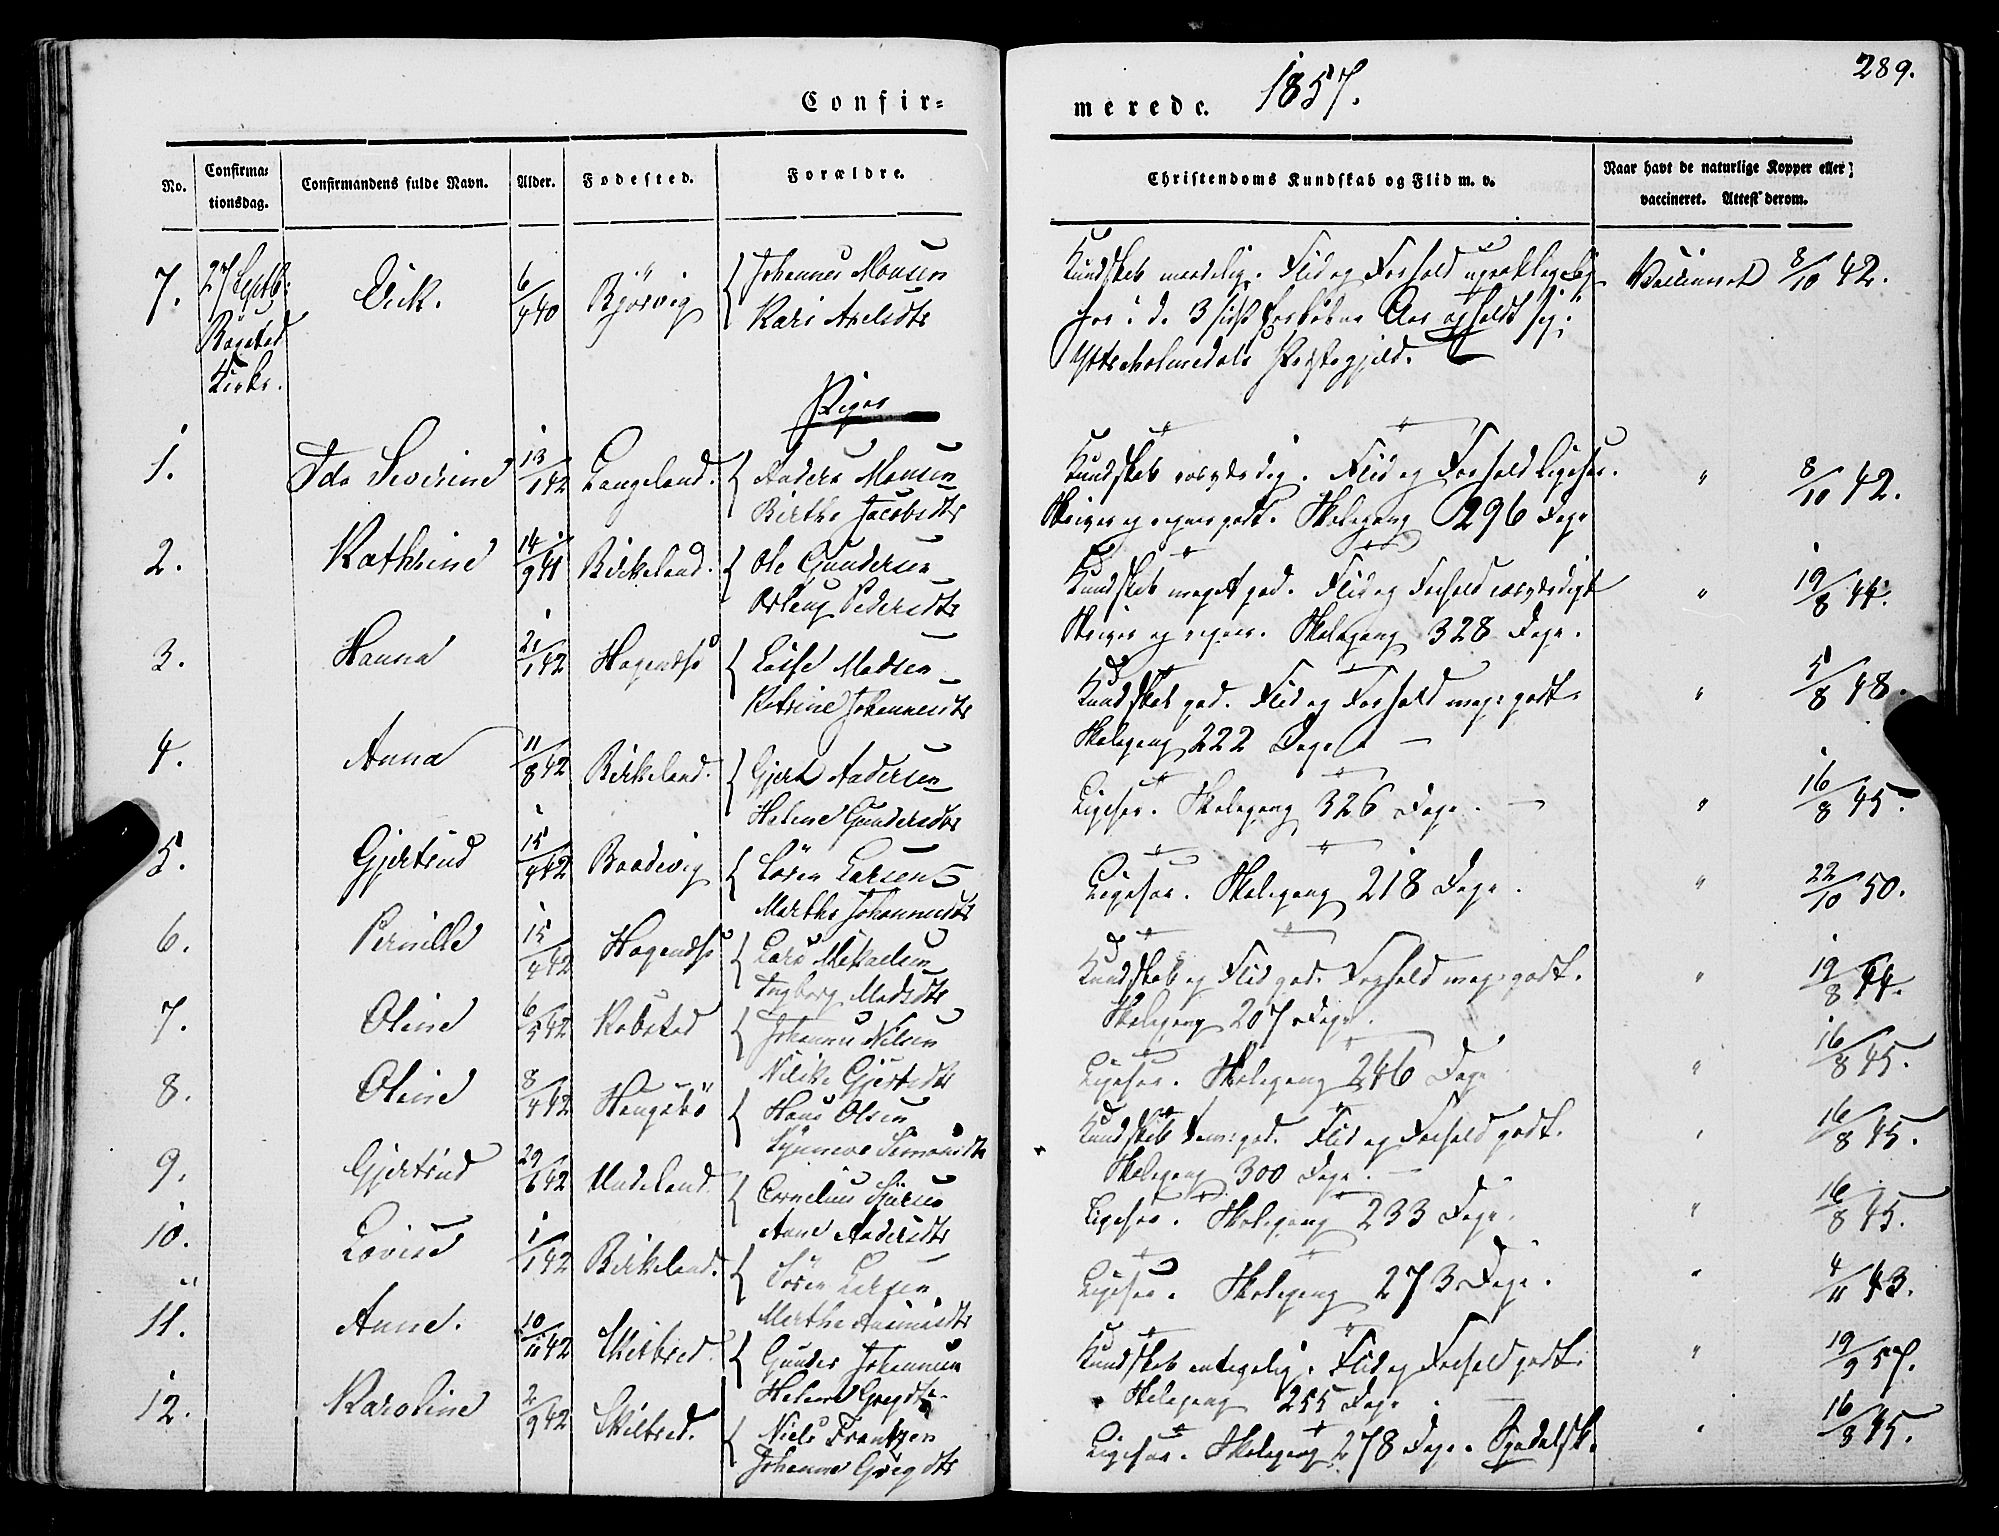 Confir-
merede. 1857.
289.
No. Confirma-tionsdag. Confirmandens fulde Navn. Alder. Fødested. Forældre. Christendoms Kundskab og Flid m. v. Naar havt de naturlige Kopper eller vaccineret. Attest derom.
7. 27 Septb. Kirke. Eick. 6/4 40 Bjørvig { Johannes Monsen
Kari Axelsdtr
Kundskab maadelig. Flid og Forhold upaaklagelig
har i de 3 sidst forløbne Aar opholdt sig i
Præstegjeld.
Vaccineret 8/10 42.
Piger
1. Ida Severine 13/1 42 Langeland. { Anders Monsen
Birthe Jacobsdtr
Kundskab roesværdig. Flid og Forhold Ligesaa.
Skriver og regner godt. Skolegang 296 Dage
" 8/10 42.
2. Kathrine 14/9 41 Birkeland. { Ole Gundersen
Aslaug Pedersdtr
Kundskab meget god. Flid og Forhold roesværdigt
Skriver og regner. Skolegang 328 Dage.
" 19/8 44.
3. Hanna 21/1 42 { Madsen
Johannesdtr
Kundskab god. Flid og Forhold meg: godt.
Skolegang 222 Dage. —
" 5/8 48.
4. Anna 11/8 42 Birkeland. { Gjert Andersen
Helene Gundersdtr
Ligesaa. Skolegang 326 Dage. —
" 16/8 45.
5. Gjertrud 15/4 42 { Sören Larsen
Marthe Johannesdtr
Ligesaa. Skolegang 218 Dage.
" 22/10 50.
6. Pernille 15/4 42 { Lars Mikaelsen
Ingborg Madsdtr
Kundskab og Flid god. Forhold meg: godt.
Skolegang 207 Dage.
" 19/8 44.
7. Oline 6/5 42 { Johannes Nilsen
Gjertsdtr
Ligesaa. Skolegang 246 Dage
" 16/8 45.
8. Oline 8/4 42 { Hans Olsen
Synneve Simonsdtr
Kundskab temm: god. Flid og Forhold godt.
Skolegang 300 Dage. —
" 16/8 45.
9. Gjertrud 29/6 42 Undeland. { Cornelius
Anne Andersdtr
Ligesaa. Skolegang 233 Dage.
" 16/8 45.
10. Lovise 1/1 42 Birkeland. { Sören Larsen
Marthe
Ligesaa. Skolegang 273 Dage.
" 4/11 43.
11. Anne. 10/11 42 { Gunder Johannesen
Helene Gregdtr
Kundskab antagelig. Flid og Forhold godt.
Skolegang 255 Dage.
" 19/9 57.
12. Karoline 2/9 42 { Niels Frantzen
Johanne Gregdtr
Ligesaa. Skolegang 278 Dage.
" 16/8 45.